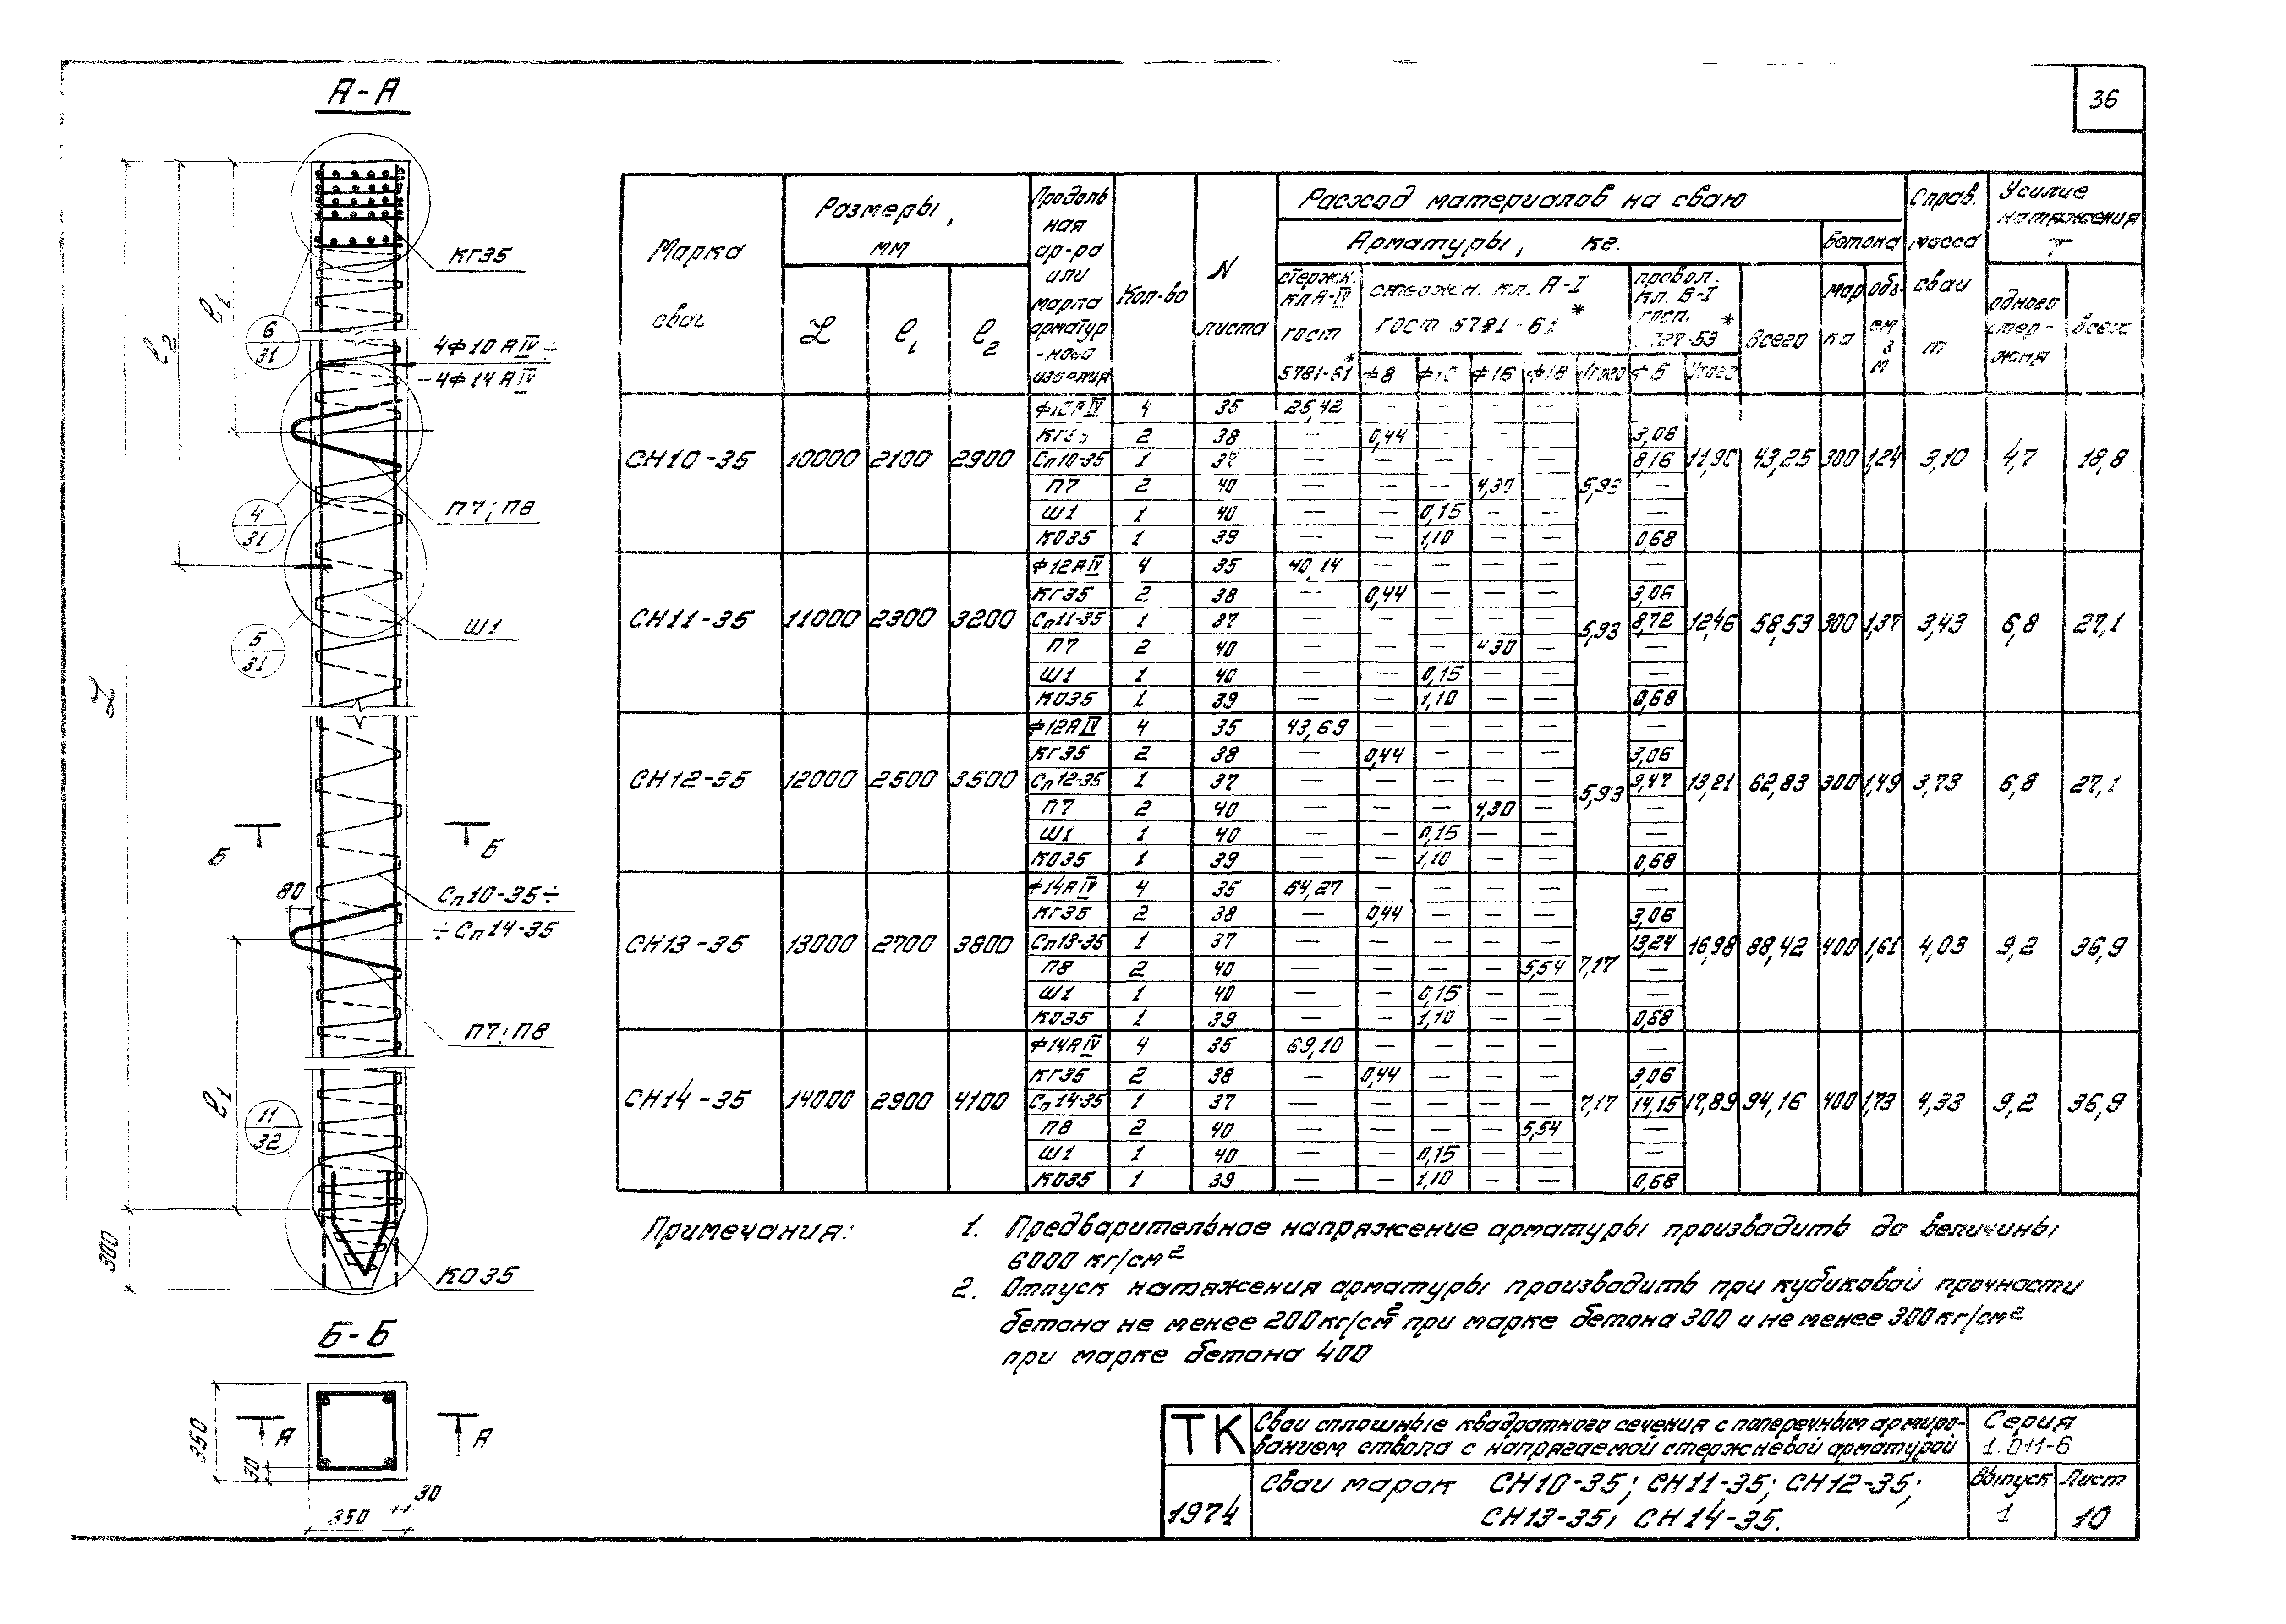 36
А-А
КГ35
ℓ1
ℓ2
6
31
4Ф10АIV÷
-4Ф14АIV
П7; П8
4
31
Ш1
5
31
L
Б Б
80
Сп10-35÷
÷Сп14-35
П7; П8
ℓ1
11
32
300
КО35
Б-Б
350
30
А А
30
350
Марка сваи | Размеры, мм | Продольная ар-ра или марка арматурного изделия | Кол-во | N листа | Расход материалов на сваю | Справ. масса сваи т | Усилие натяжения т
L | ℓ1 | ℓ2 | Арматуры, кг. | Бетона | одного стержня | всего
стержн. кл А-IV гост 5781-61* | стержн. кл. А-I гост 5781-61* | провол. кл. В-I | всего | марка | объем м3
Ф8 | Ф10 | Ф16 | Ф18 | Итого | Ф5 | Итого
СН10-35 | 10000 | 2100 | 2900 | 5,93 | 11,90 | 43,25 | 300 | 1,24 | 3,10 | 4,7 | 18,8
Ф10АIV | 4 | 35 | 25,42 | — | — | — | —
КГ35 | 2 | 38 | — | 0,44 | - | - | — | 3,06
Сп10-35 | 1 | 37 | — | — | — | — | — | 8,16
П7 | 2 | 40 | — | — | — | 4,30 | — | —
Ш1 | 1 | 40 | — | — | 0,15 | — | — | —
КО35 | 1 | 39 | — | — | 1,10 | — | — | 0,68
СН11-35 | 11000 | 2300 | 3200 | 5,93 | 12,46 | 58,53 | 300 | 1,37 | 3,43 | 6,8 | 27,1
Ф12АIV | 4 | 35 | 40,14 | — | — | — | — | —
КГ35 | 2 | 38 | — | 0,44 | — | — | — | 3,06
Сп11-35 | 1 | 37 | — | — | — | — | — | 8,72
П7 | 2 | 40 | — | — | — | 4,30 | — | —
Ш1 | 1 | 40 | — | — | 0,15 | — | — | —
КО35 | 1 | 39 | — | — | 1,10 | — | — | 0,68
СН12-35 | 12000 | 2500 | 3500 | 5,93 | 13,21 | 62,83 | 300 | 1,49 | 3,73 | 6,8 | 27,1
Ф12АIV | 4 | 35 | 43,69 | — | — | — | — | —
КГ35 | 2 | 38 | — | 0,44 | — | — | — | 3,06
Сп12-35 | 1 | 37 | — | — | — | — | — | 9,47
П7 | 2 | 40 | — | — | — | 4,30 | — | —
Ш1 | 1 | 40 | — | — | 0,15 | — | — | —
КО35 | 1 | 39 | — | — | 1,10 | — | — | 0,68
СН13-35 | 13000 | 2700 | 3800 | 7,17 | 16,98 | 88,42 | 400 | 1,61 | 4,03 | 9,2 | 36,9
Ф14АIV | 4 | 35 | 64,27 | — | — | — | — | —
КГ35 | 2 | 38 | — | 0,44 | — | — | — | 3,06
Сп13-35 | 1 | 37 | — | — | — | — | — | 13,24
П8 | 2 | 40 | — | — | — | — | 5,54 | —
Ш1 | 1 | 40 | — | — | 0,15 | — | — | —
КО35 | 1 | 39 | — | — | 1,10 | — | — | 0,68
СН14-35 | 14000 | 2900 | 4100 | 7,17 | 17,89 | 94,16 | 400 | 1,73 | 4,33 | 9,2 | 36,9
Ф14АIV | 4 | 35 | 69,10 | — | — | — | — | —
КГ35 | 2 | 38 | — | 0,44 | — | — | — | 3,06
Сп14-35 | 1 | 37 | — | — | — | — | — | 14,15
П8 | 2 | 40 | — | — | — | — | 5,54 | —
Ш1 | 1 | 40 | — | — | 0,15 | — | — | —
КО35 | 1 | 39 | — | — | 1,10 | — | — | 0,68
Примечания: 1. Предварительное напряжение арматуры производить до величины
6000 кг/см2
2. Отпуск натяжения арматуры производить при кубиковой прочности
бетона не менее 200кг/см2 при марке бетона 300 и не менее 300кг/см2
при марке бетона 400
ТК
Сваи сплошные квадратного сечения с поперечным армиро-
ванием ствола с напрягаемой стержневой арматурой
Серия
1.011-6
1974
Сваи марок СН10-35; СН11-35; СН12-35;
СН13-35; СН14-35.
Выпуск
1
Лист
10